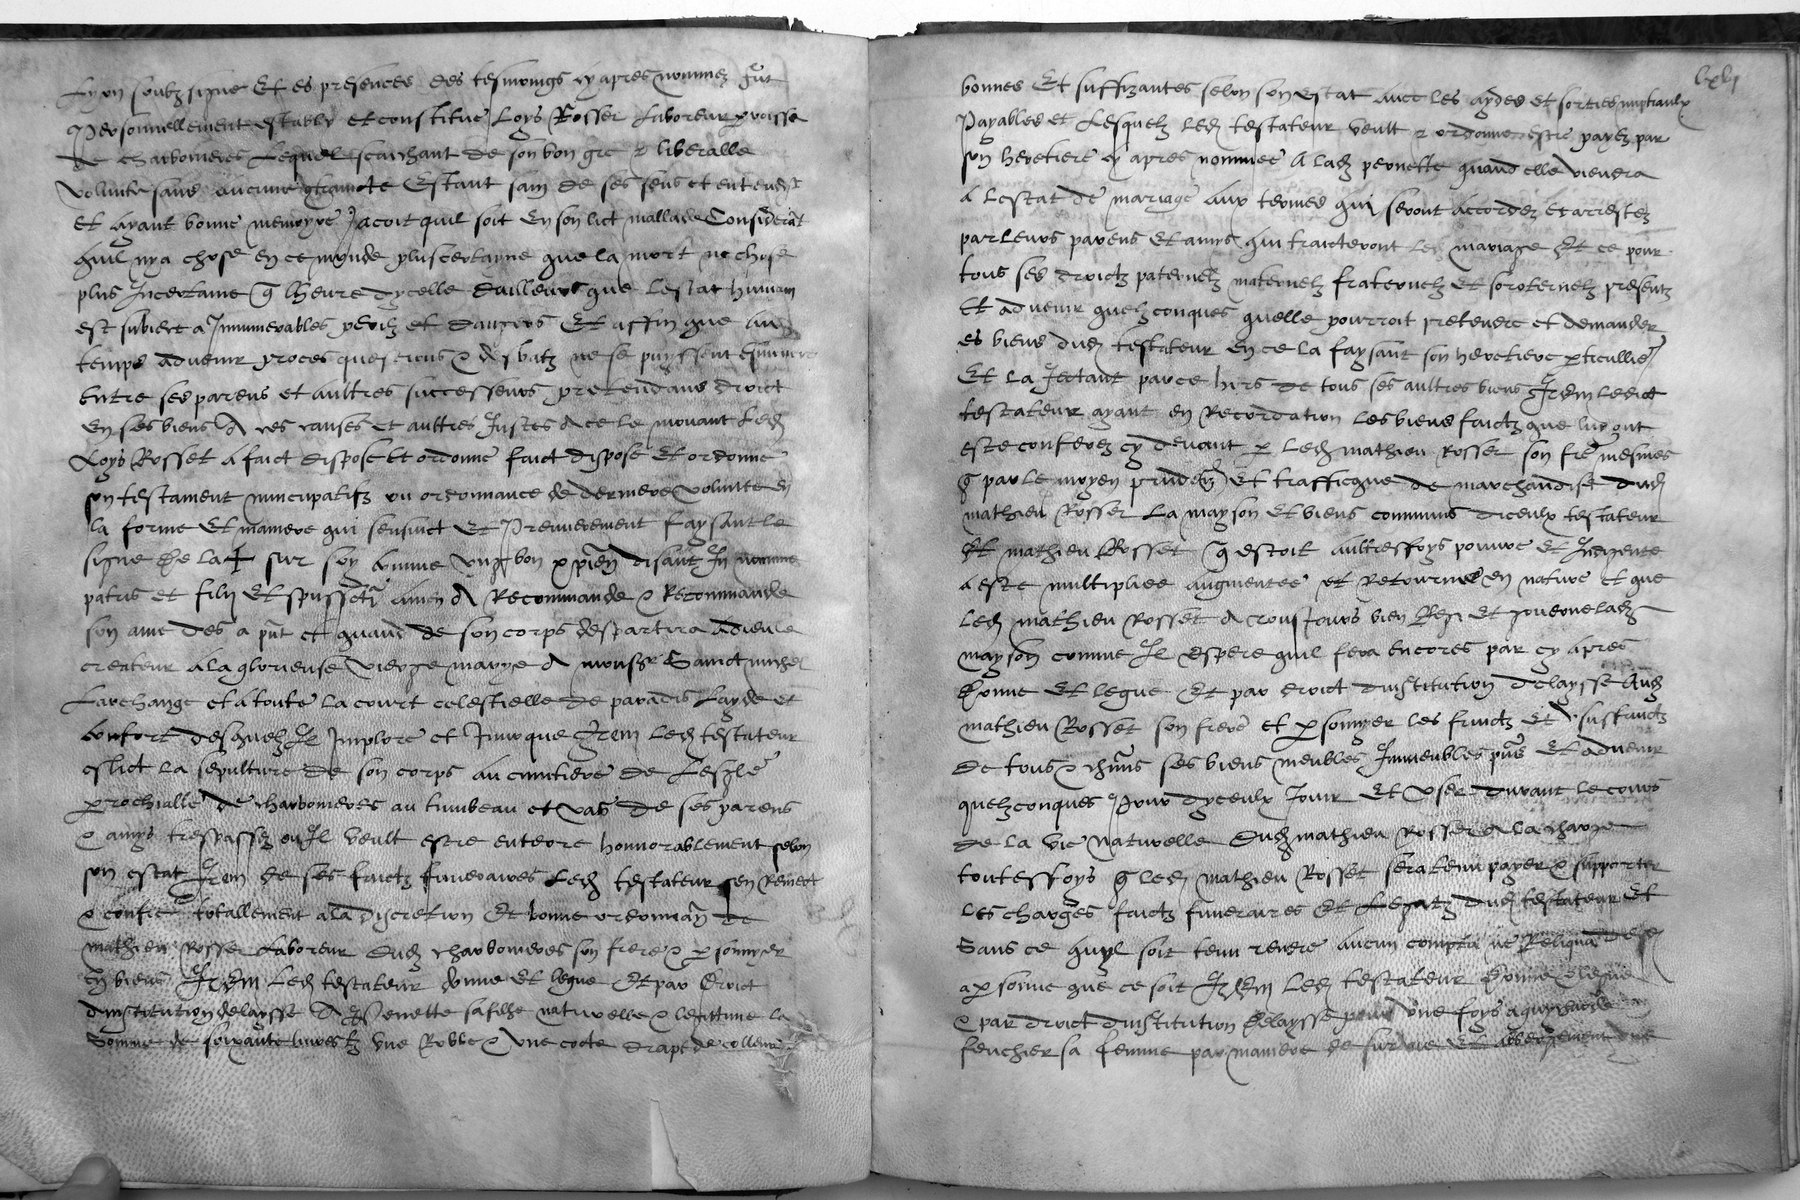 Lyon soubz signe Et es presences des tesmoings cy apres nommez fut
Personnellement estably et constitue Loys Rosset Laboreur parroisse
de charbonieres Lequel scaichant de son bon gre & liberalle
volunte sans aucune contrainte Estant sain de ses sens et entendt
et ayant bonne memoyre Jacoit quil soit En son lict mallade Considerat
quil nya chose En ce monde plus certayne que la mort ne chose
plus Incertaine q lheure dycelle dailleurs que Lestat humain
est subiect a Innumerables perilz et dangers Et affin que au
temps advenir proces questions & debatz ne se puyssent esmouvoir
Entre ses parens et aultres successeurs pretendans droict
en ses biens A ces causes et aultres Justes A ce le mouvant Ledt
Loys Rosset a faict dispose et ordonne faict dispose Et ordonne
son testament nuncupatifz ou ordonnance de derniere volunte en
la forme Et maniere qui sensuict Et Premierement faysant le
signe de la + sur soy comme ung bon xpien disant In nomine
patris et filij Et spussancti amen A Recommande & Recommande
son ame des a pnt et quand de son corps despartira a dieu le
createur a la glorieuse vierge marye A monsr Sainct michel
Larchange et a toute la court celestielle de paradis Layde et
confort desquelz Il Implore et Invoque Item Ledt testateur
eslict la sepulture de son corps au cimitiere de Leglise
parrochialle de charbonieres au tumbeau et vas de ses parens
& amys trespassez ou Il veult estre enterre honnorablement selon
son estat Item de ses faictz funeraires Ledt testateur sen Remect
& confie totallement a la discretion Et bonne ordonnan de
mathieu Rosset Laboreur dudt charbonieres son frere & parsonnyer
En biens Item Ledt testateur donne Et legue Et par droict
dinstitution delaysse A Penette sa fille naturelle & legittime la
Somme de soixante livres tz une Robbe & Une cotte drapt de colleur
lxxj
bonnes Et suffizantes selon son estat avec les aydes et sorties nuptiaulx
Payables et Lesquelz Ledt testateur veult & ordonne estre payez par
son heretiere cy apres nommee A ladt pernette quand elle viendra
a Lestat de mariage aux termes qui seront accordez et arrestez
par leurs parens Et amys qui traicteront Ledt mariage Et ce pour
tous ses droictz paternelz maternelz fraternelz Et sororternelz presentz
Et advenir quelzconques quelle pourroit pretendre et demander
es biens dudt testateur en ce la faysant son heretiere particulliere
Et la Jectant par ce hors de tous ses aultres biens Item Ledict
testateur ayant en Recordation Les biens faictz que luy ont
este conferez cy devant par Ledt mathieu Rosset son frere mesmes
q par le moyen prudence Et trafficque de marchandise dudt
mathieu Rosset La mayson Et biens communs diceulx testateur
Et mathieu Rosset q estoit aultresfoys pouvre Et Indigente
a este multipliee augmentee et Retournee en nature et que
Ledt mathieu Rosset A tousjours bien Regi Et gouverne ladt
mayson comme Il espere quil fera encores par cy apres
Donne Et legue Et par droict dinstitution delaysse Audt
mathieu Rosset son frere et parsonnyer les fruictz Et Usufruictz
De tous & chuns ses biens meubles Immeubles pns Et advenir
quelzconques Pour dyceulx Jouir Et User durant le cours
de la vie naturelle Dudt mathieu Rosset A la charge
toutesfoys q Ledt mathieu Rosset sera tenu payer & supporter
Les charges faictz funeraires Et Legatz dudt testateur Et
Sans ce quyl soit tenu rendre aucun compte ne Reliqua
a personne que ce soit Item Ledt testateur Donne & legue
& par droict dinstitution Delaysse pour une foys a
feuchier sa femme par maniere de survie Et